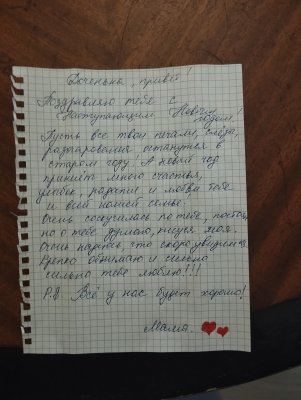 Доченька, привет!
Поздравляю тебя с
Наступающим Новым
годом!
Пусть все твои печали, слёзы,
разачарования останутся в
старом году! А новый год
принесёт много счастья,
улыбок, радости и любви тебе
и всей нашей семье.
Очень соскучилась по тебе, постоян
но о тебе думаю, рисуля моя.
Очень надеюсь, что скоро увидимся.
Крепко обнимаю и сильно
сильно тебя люблю!!!
P.S. Всё у нас будет хорошо!
Мама.